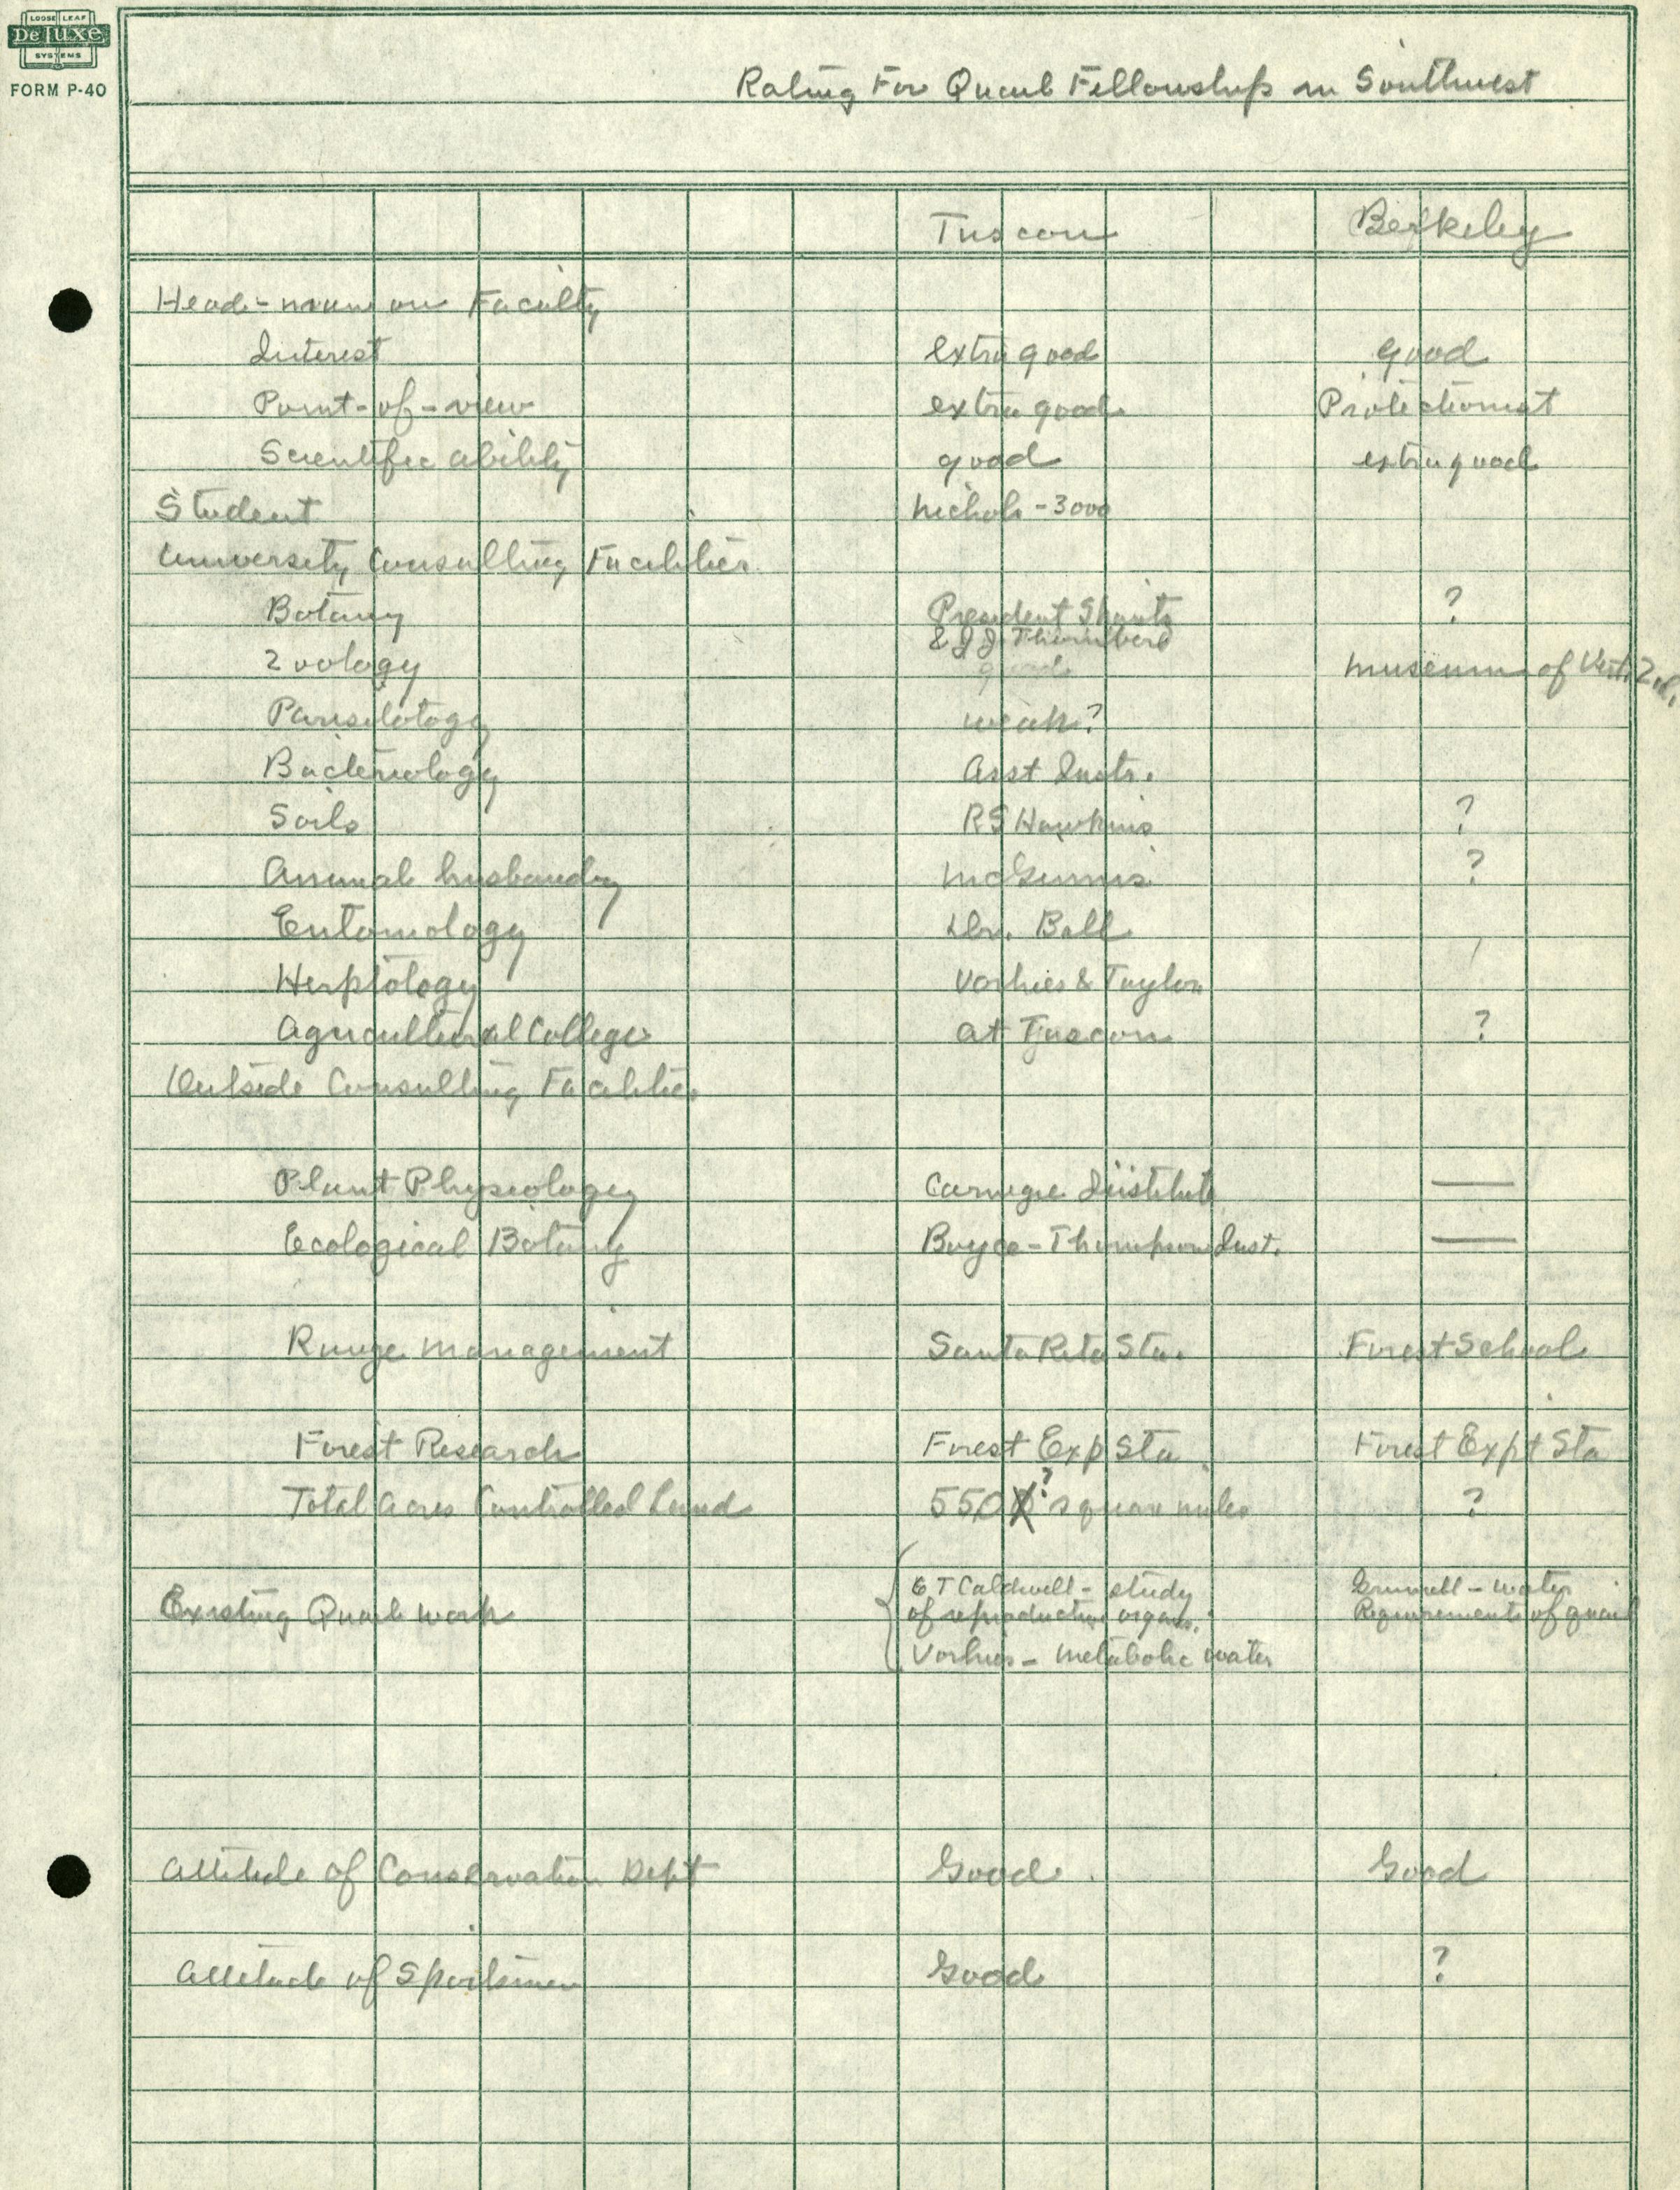 LOOSE LEAF
DeLuxe
SYSTEMS
FORM P-40
Rating For Quail Fellowship in Southwest
Tuscon Berkeley
Head-man on Faculty
Interest extra good good
Point-of-view extra good Protectionist
Scientific ability good extra good
Student Nichols - 3000
University Consulting Facilities
Botany President Shantz ?
& J J Thornberg
Zoology good Museum of Vert. Zol.
Parisitotogy weak?
Bacteriology Asst Instr.
Soils RS Hawkins ?
Animal husbandry McGinnis ?
Entomology Dr. Ball
Herptology Vorhies & Taylor
Agricultural College at Tuscon ?
Outside Consulting Facilities
Plant Physiology Carnegie Institute —
Ecological Botany Boyce-Thompson Inst. —
Range Management Santa Rita Sta. Forest School
Forest Research Forest Exp Sta. Forest Expt Sta
Total Acres Controlled Land 550 ? square miles ?
Existing Quail work E T Caldwell - study Grinnell - water
of reproductive organs. Requirements of quail
Vorhies - metabolic water
Attitude of Conservation Dept Good Good
Attitude of Sportsmen Good ?